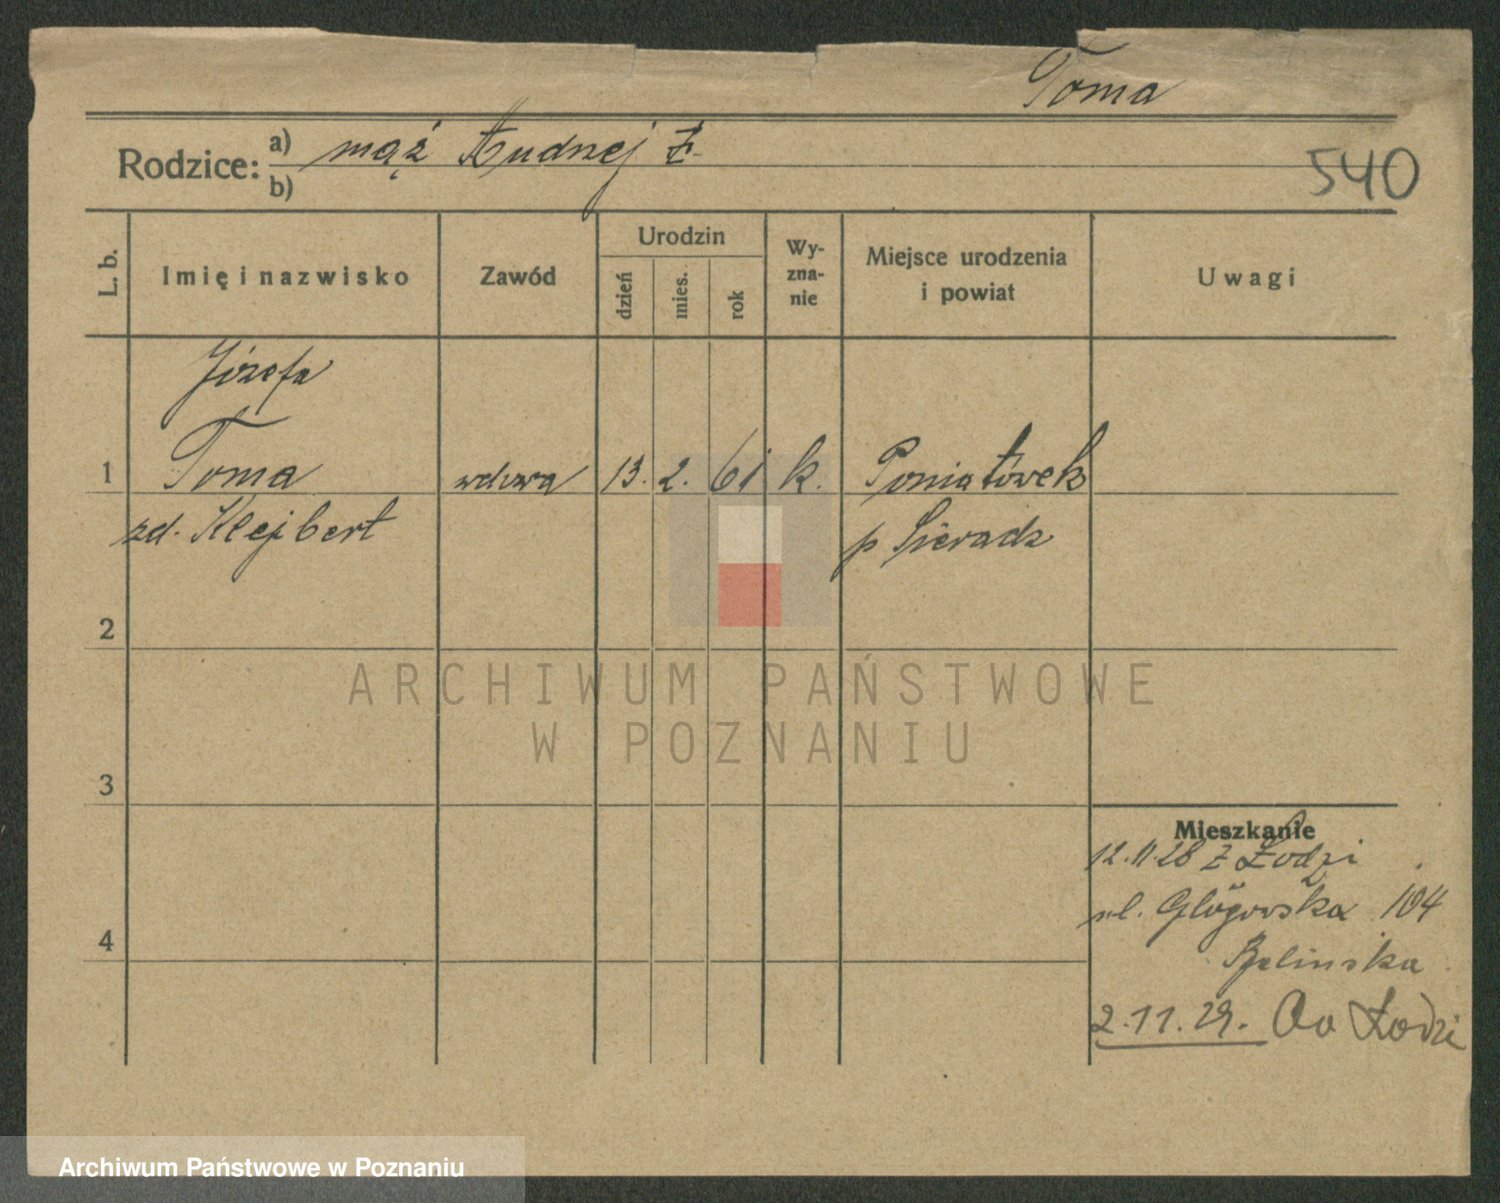 Toma
Rodzice: a) mąż Andrzej Ł.
b)
540
L. b.
Imię i nazwisko
Zawód
Urodzin
dzień
mies.
rok
Wy-
zna-
nie
Miejsce urodzenia
i powiat
Uwagi
Józefa
1 Toma wdowa 13. 2. 61 k. Poniatówek
zd. Klejbert p Sieradz
2
ARCHIWUM PAŃSTWOWE
W POZNANIU
3
Mieszkanie
12.11.28 z Łodzi
ul. Głogowska 104
4
2.11.29. Do Łodzi
Archiwum Państwowe w Poznaniu